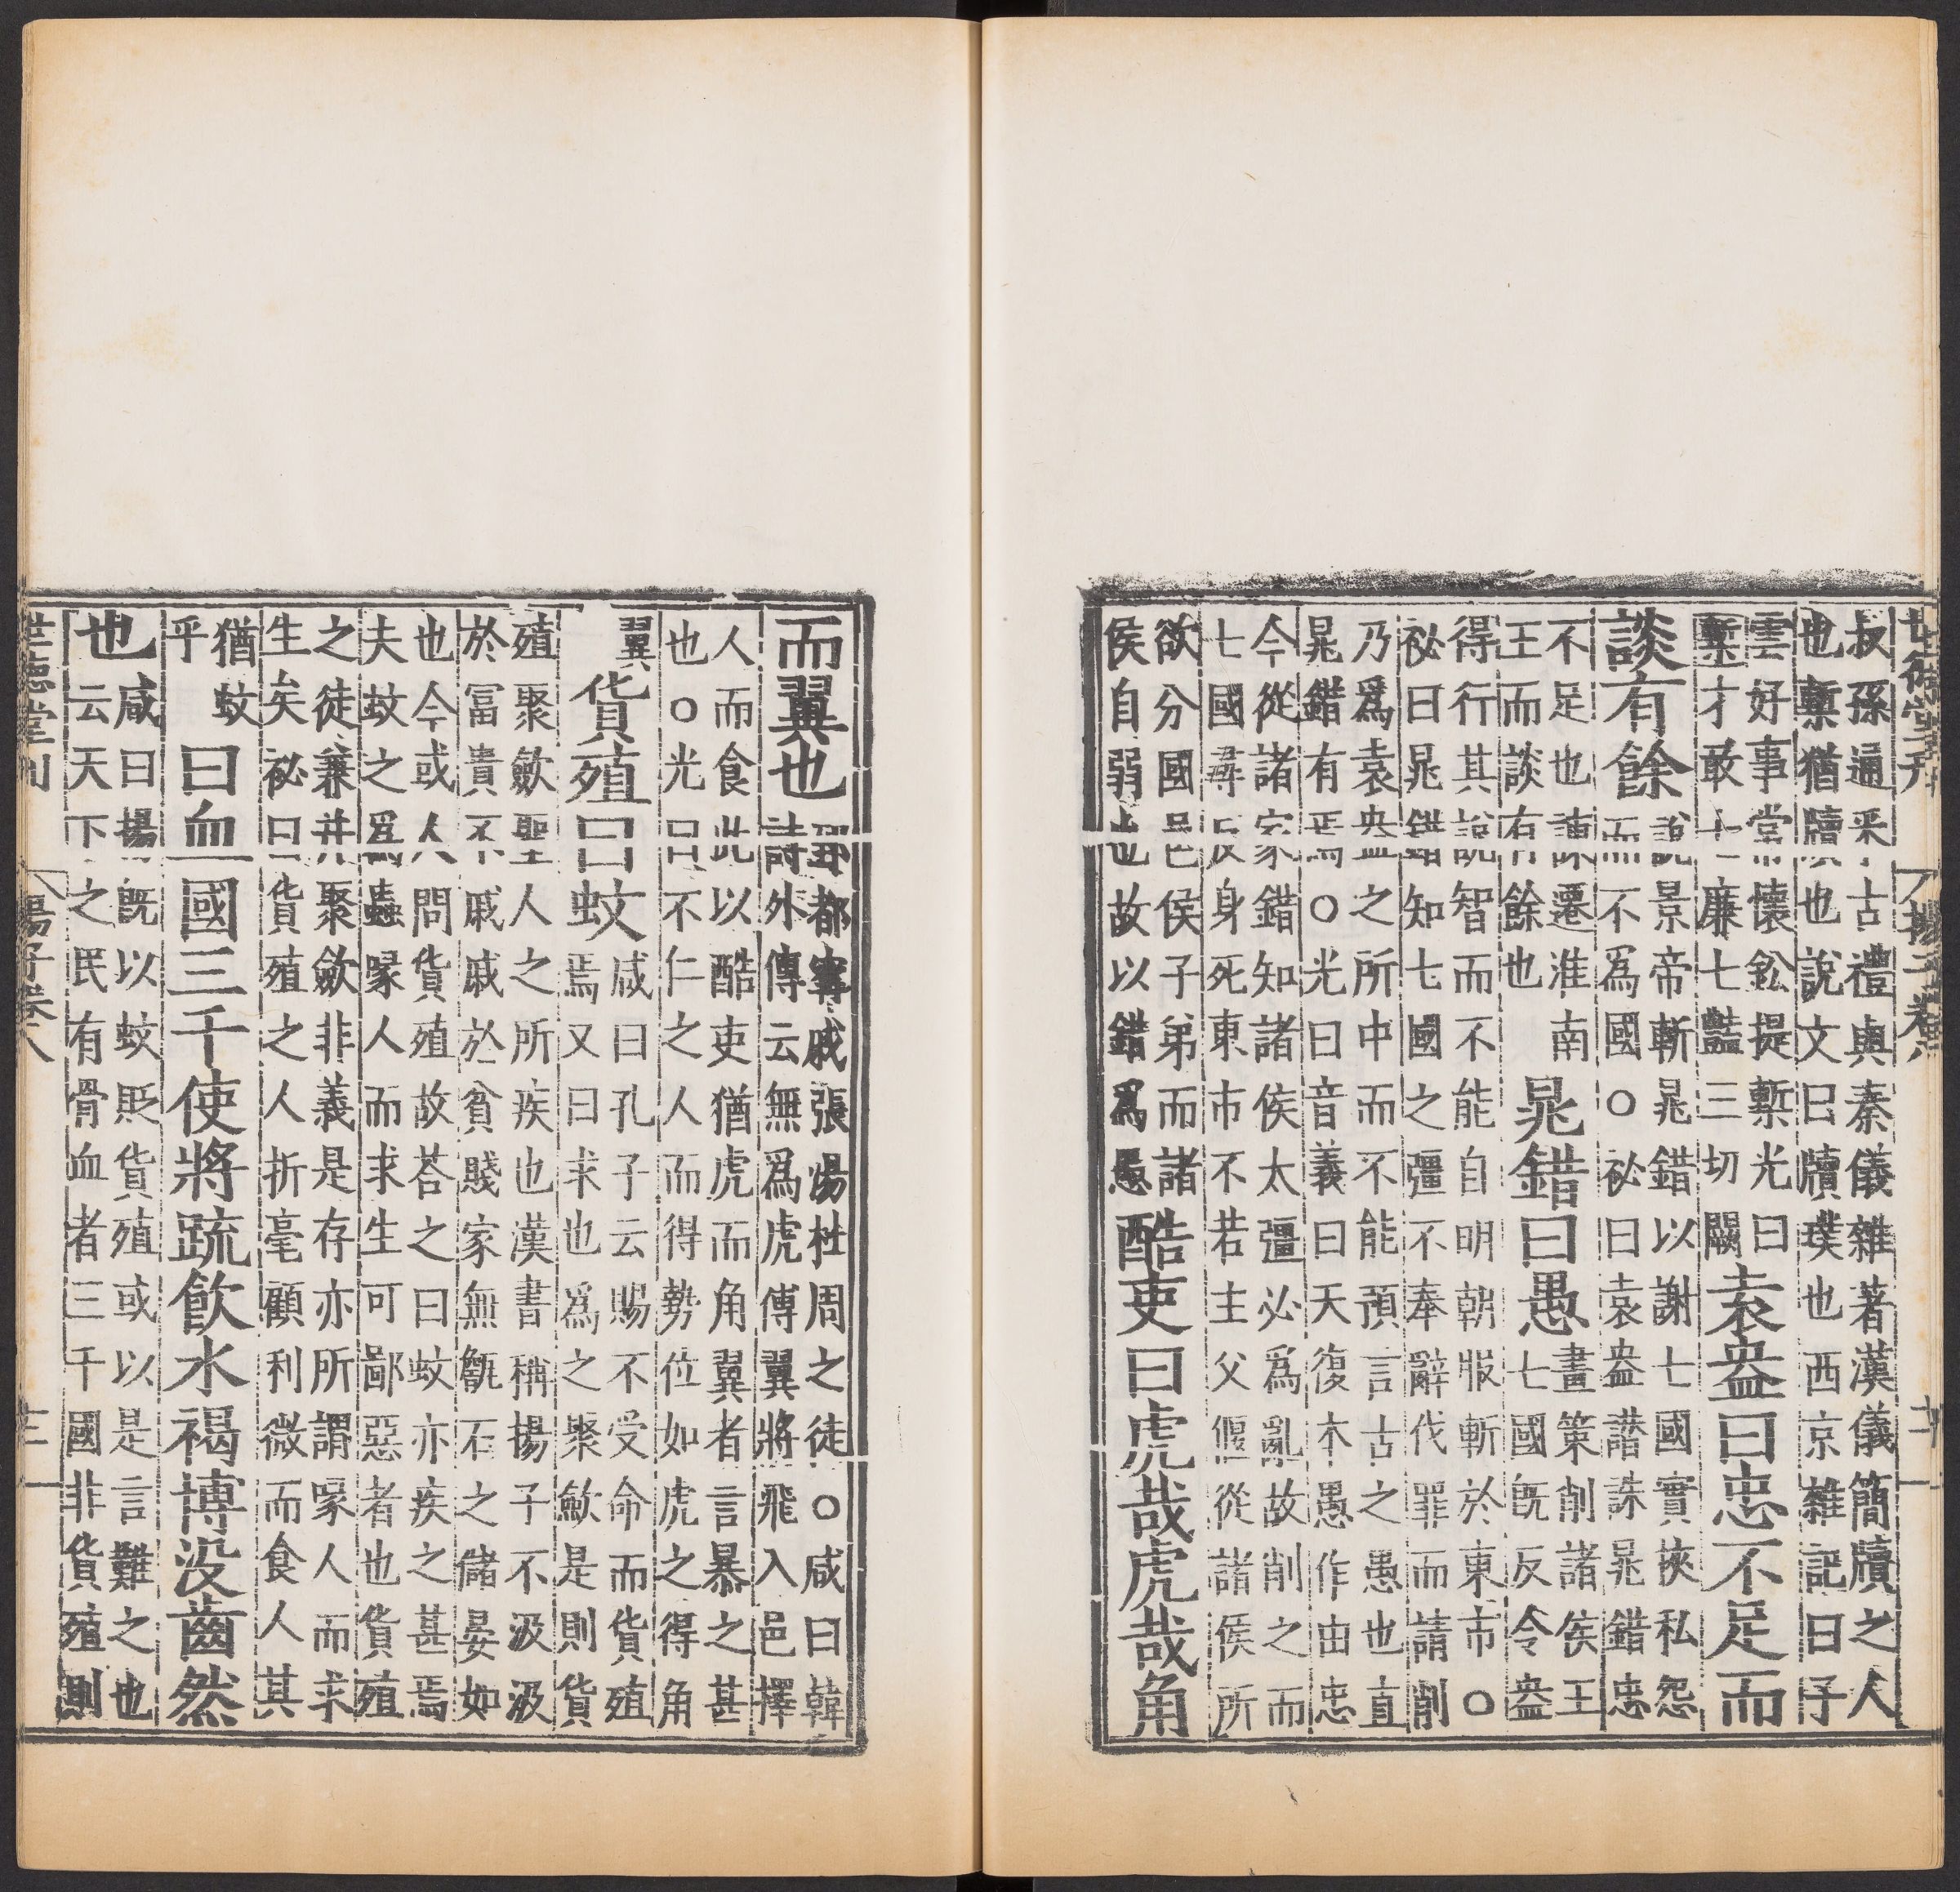 世德堂刊 揚子卷八 十二
叔孫通采古禮與秦儀雜著漢儀簡牘之人
也槧猶牘也說文曰牘璞也西京雜記曰子
雲好事常懷鉛提槧光曰
槧才敢七廉七豔三切闕
袁盎曰忠不足而
談有餘
說景帝斬晁錯以謝七國實挾私怨
而不爲國○祕曰袁盎譖誅晁錯忠
不足也諫遷淮南
王而談有餘也
晁錯曰愚
畫策削諸侯王
七國旣反令盎
得行其說智而不能自明朝服斬於東市○
祕曰晁錯知七國之彊不奉辭伐罪而請削
乃爲袁盎之所中而不能預言古之愚也直
晁錯有焉○光曰音義曰天復本愚作由忠
今從諸家錯知諸侯太彊必爲亂故削之而
七國尋反身死東市不若主父偃從諸侯所
欲分國邑侯子弟而諸
侯自弱也故以錯爲愚
酷吏曰虎哉虎哉角
而翼也
郅都寗戚張湯杜周之徒○咸曰韓
詩外傳云無爲虎傅翼將飛入邑擇
人而食此以酷吏猶虎而角翼者言暴之甚
也○光曰不仁之人而得勢位如虎之得角
翼
貨殖曰蚊
咸曰孔子云賜不受命而貨殖
焉又曰求也爲之聚斂是則貨
殖聚斂聖人之所疾也漢書稱揚子不汲汲
於富貴不戚戚於貧賤家無甔石之儲晏如
也今或人問貨殖故荅之曰蚊亦疾之甚焉
夫蚊之爲蟲啄人而求生可鄙惡者也貨殖
之徒兼并聚斂非義是存亦所謂啄人而求
生矣祕曰貨殖之人折毫顧利微而食人其
猶蚊
乎
曰血國三千使將疏飲水褐博没齒然
也
咸曰揚旣以蚊貶貨殖或以是言難之也
云天下之民有骨血者三千國非貨殖則
世德堂刊 揚子卷八 十三